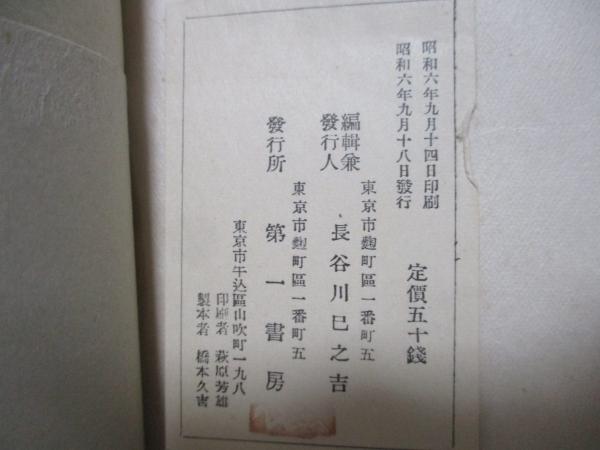 昭和六年九月十四日印刷
昭和六年九月十八日發行
定價五十錢
東京市麴町區一番町五
編輯兼
發行人
長谷川巳之吉
東京市麴町區一番町五
發行所
第一書房
東京市牛込區山吹町一九八
印刷者 萩原芳雄
製本者 橋本久吉